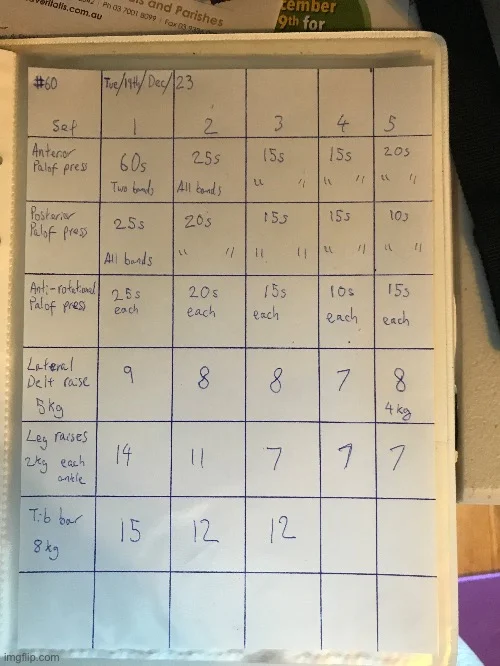 overialls.com.au
Ph 03 7001 8099 | Fax 03
and Parishes
cember
9th for
#60 Tue/19th/Dec/23
Set 1 2 3 4 5
Anterior 60s 25s 15s 15s 20s
Palof press Two bands All bands " " " " " "
Posterior 25s 20s 15s 15s 10s
Palof press All bands " " " " " " " "
Anti-rotational 25s 20s 15s 10s 15s
Palof press each each each each each
Lateral 9 8 8 7 8
Delt raise
5kg 4kg
Leg raises 14 11 7 7 7
2kg each
ankle
Tib bar 15 12 12
8kg
imgflip.com